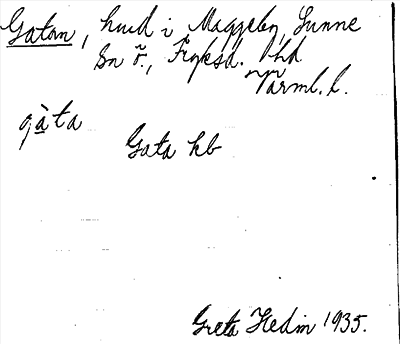 Gatan, hmd i Maggeby, Sunne
sn ö., Fryksd. hd
Värml. l.
gàta
Gata kb
Greta Hedin 1935.